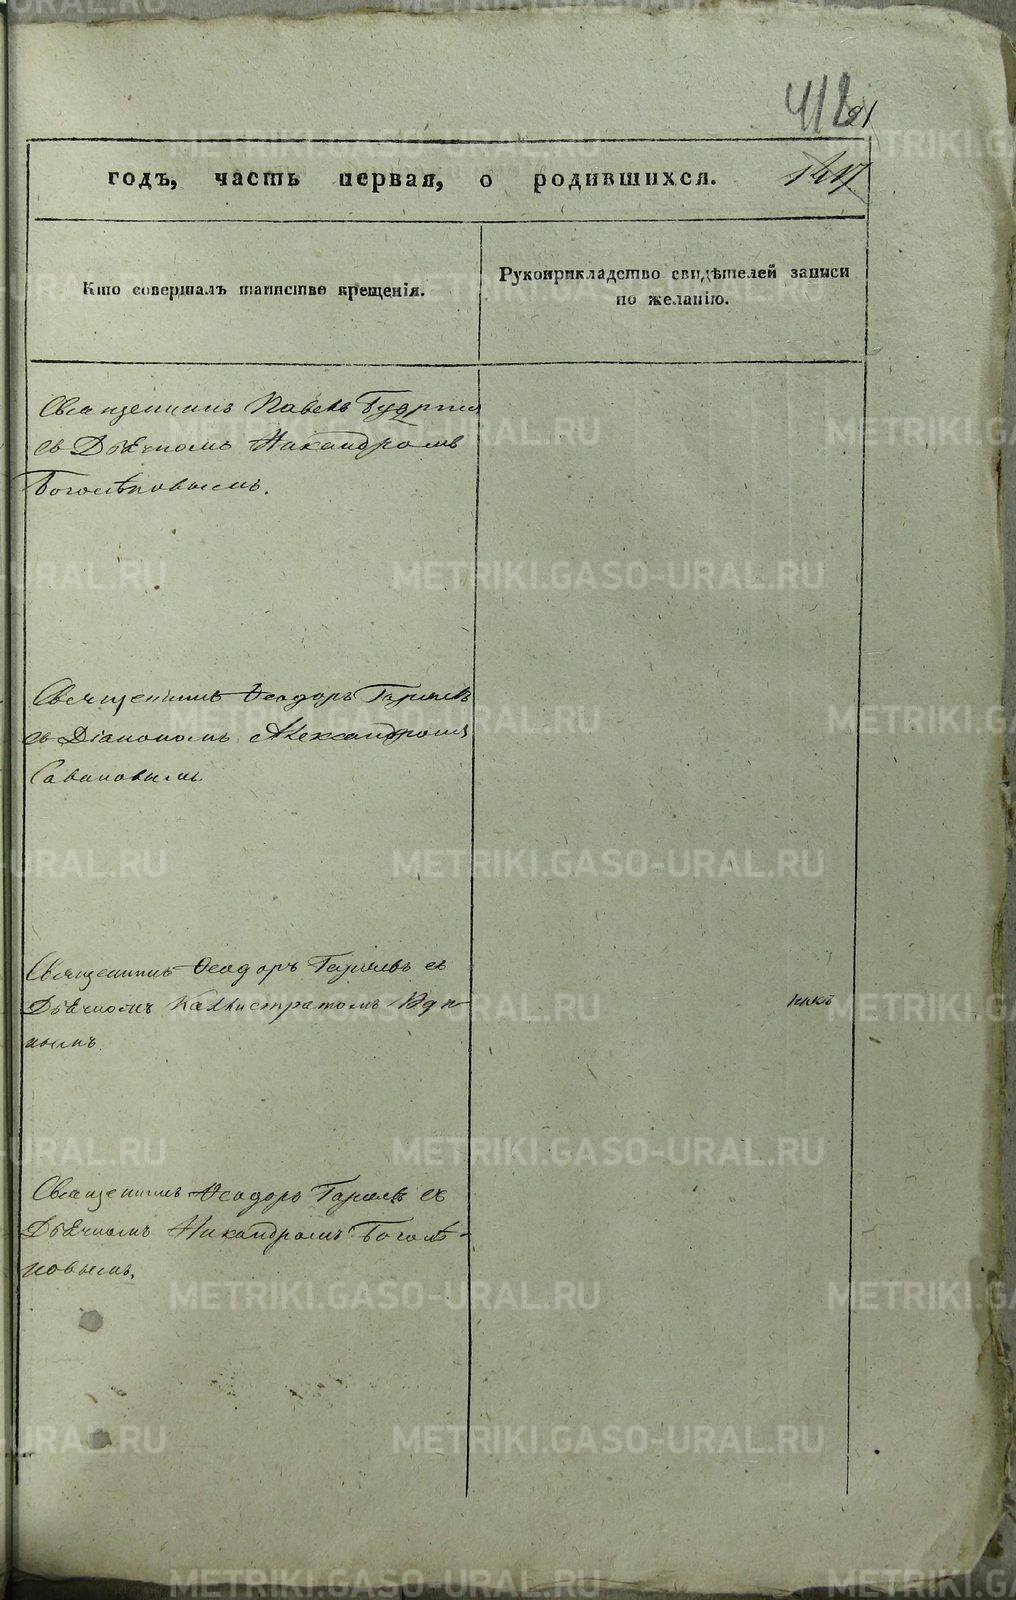 412
21
годъ, часть первая, о родившихся.
Кто совершалъ таинство крещенія.
Рукоприкладство свидѣтелей записи
по желанію.
Священникъ Павелъ
съ Дьячкомъ Никандромъ
Боголѣповымъ.
Священникъ Ѳеодоръ
съ Діакономъ Александромъ
Священникъ Ѳеодоръ съ
Дьячкомъ Каллистратомъ Удн-
нымъ.
Священникъ Ѳеодоръ съ
Дьячкомъ Никандромъ Боголѣ-
повымъ.
METRIKI.GASO-URAL.RU